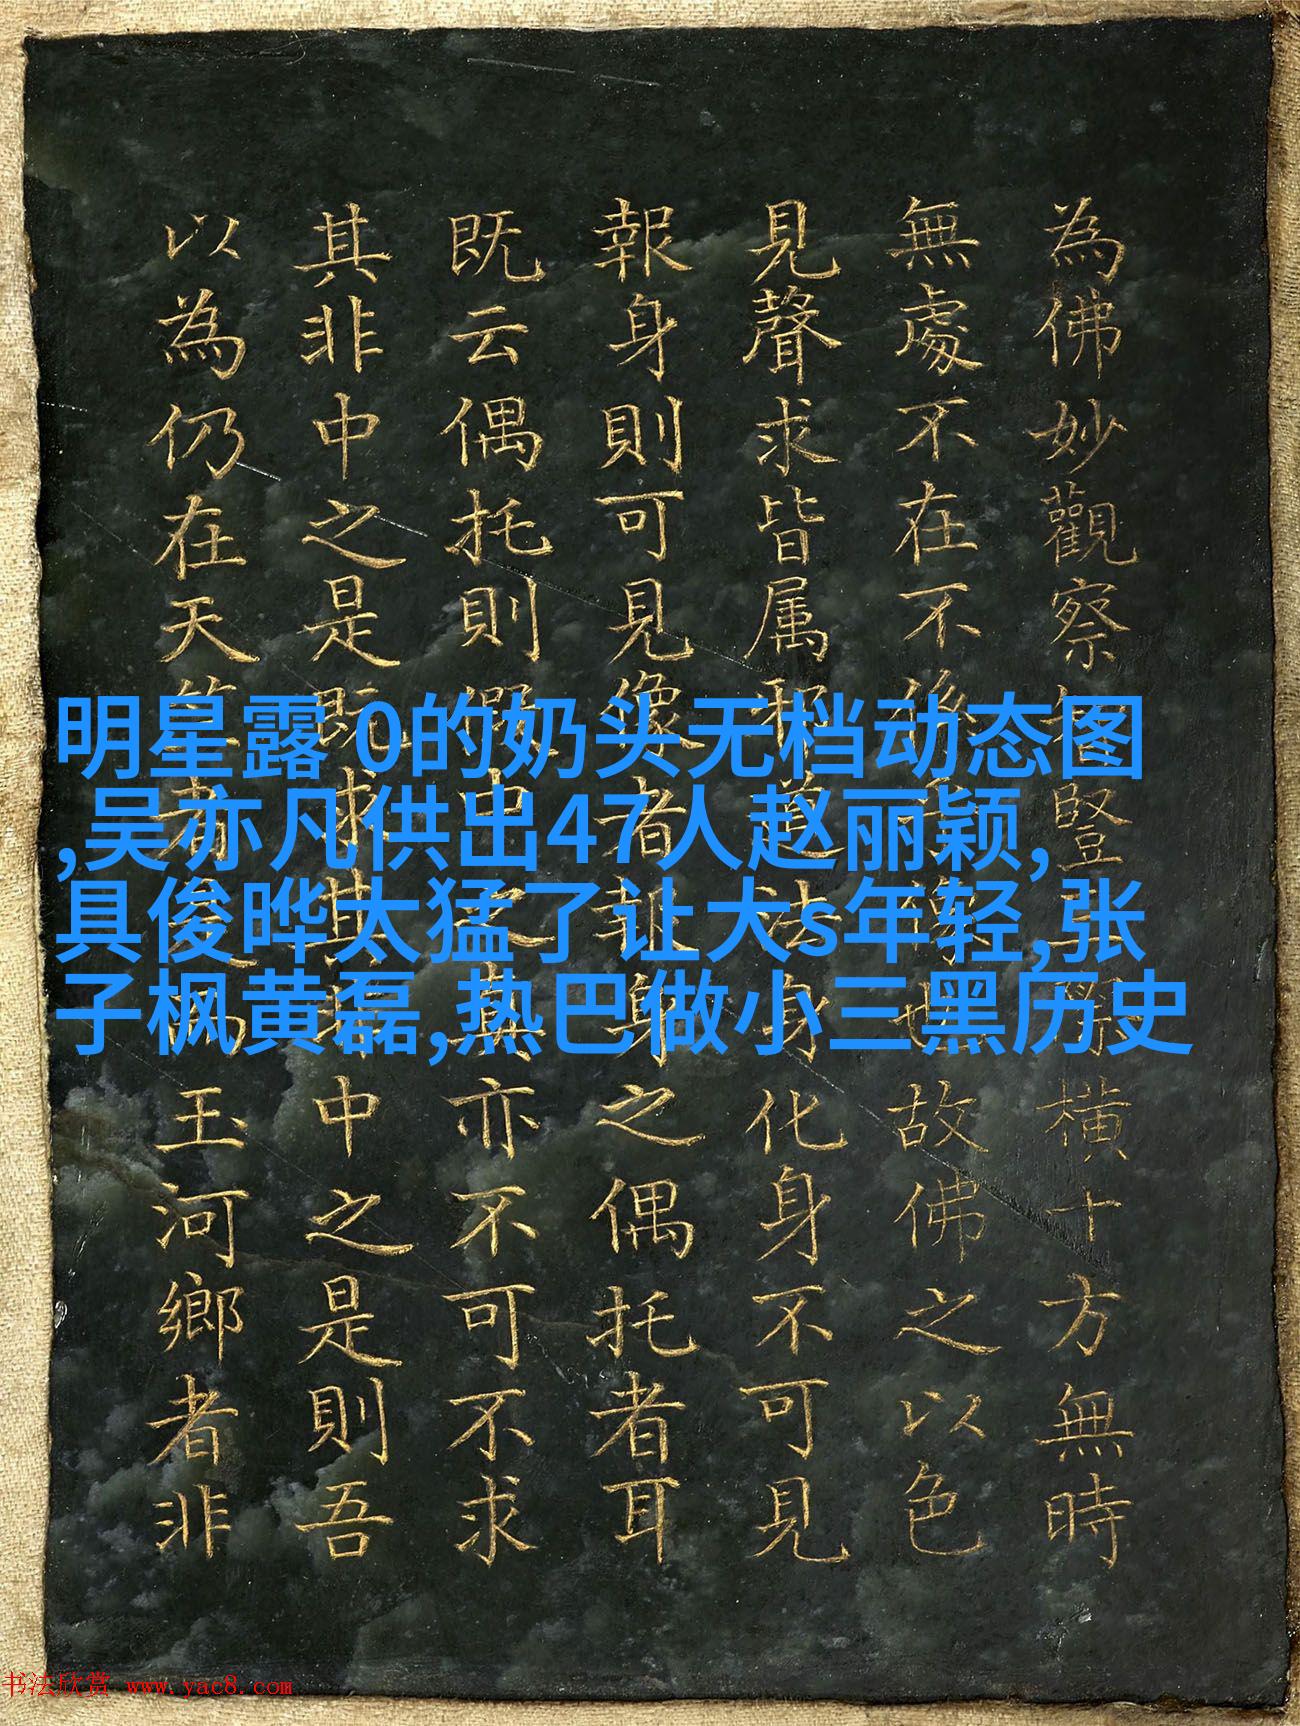 為佛妙觀察豎橫十方無時
無處不在不故佛之以色
見聲求皆属邪道法身化身不可見
報身則可見像者報身之偶托者耳
既云偶托則假中之真亦不可不求
其非中之是既求其非中之是則吾
以為仍在天竺者玉河鄉者非
明星露 0的奶头无档动态图
,吴亦凡供出47人赵丽颖,
具俊晔太猛了让大s年轻,张
子枫黄磊,热巴做小三黑历史
书法欣赏 www.yac8.com